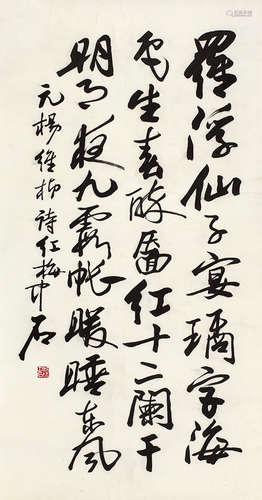 羅浮仙子宴璚宇海
色生春醉面紅十二闌干
明月夜九霞帳暖睡東風
元楊維楨詩紅梅中石